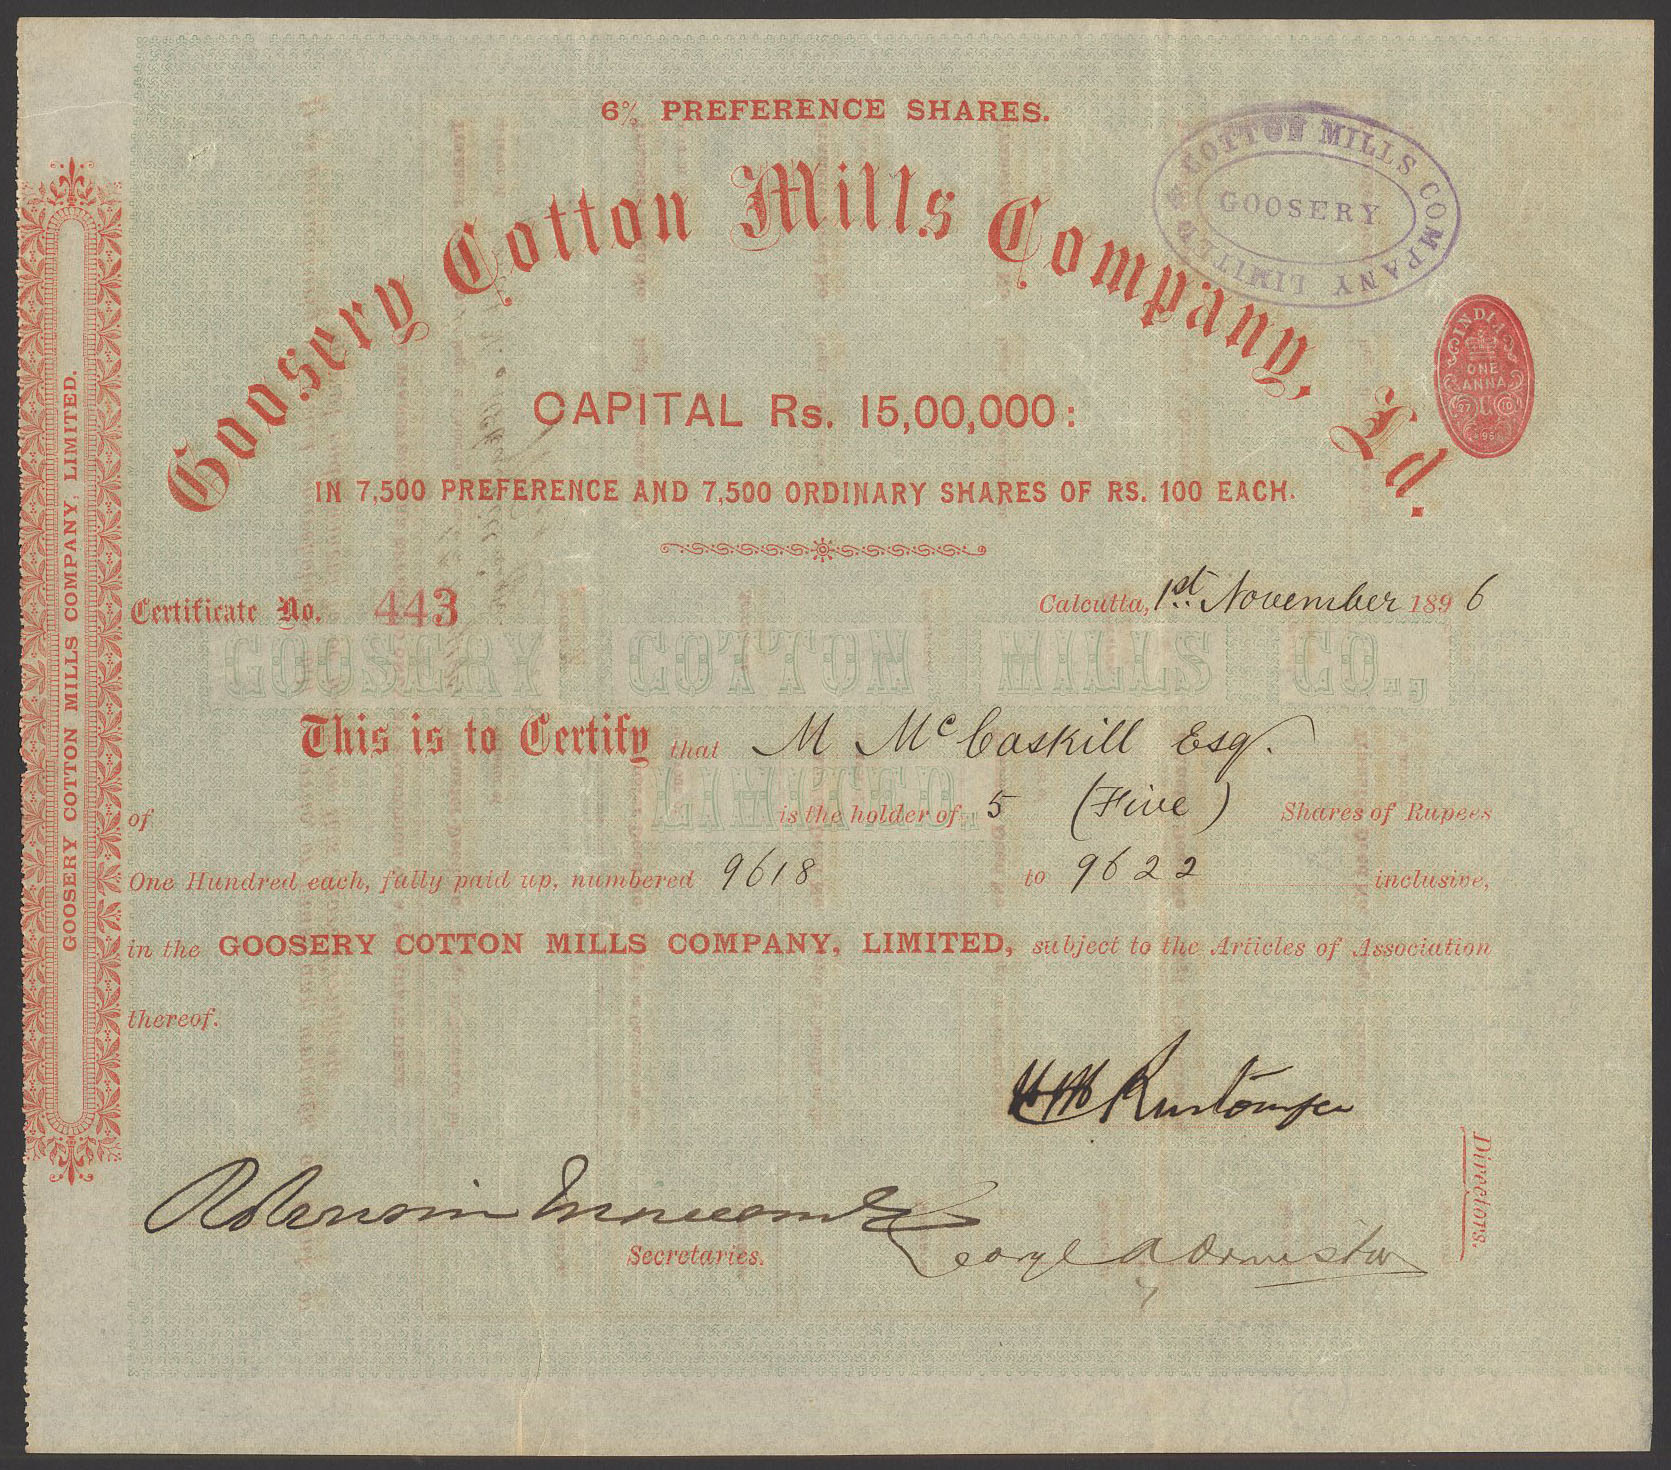 6% PREFERENCE SHARES.
Goosery Cotton Mills Company, Ld.
COTTON MILLS COMPANY LIMITED
GOOSERY
INDIA
ONE
ANNA
CAPITAL Rs. 15,00,000:
IN 7,500 PREFERENCE AND 7,500 ORDINARY SHARES OF RS. 100 EACH.
Certificate No. 443
Calcutta, 1st November 1896
GOOSERY COTTON MILLS CO.,
LIMITED.
This is to Certify that M McCaskill Esq.
of is the holder of 5 (Five) Shares of Rupees
One Hundred each, fully paid up, numbered 9618 to 9622 inclusive,
in the GOOSERY COTTON MILLS COMPANY, LIMITED, subject to the Articles of Association
thereof.
Rustomjee
Directors.
George Ormiston
Secretaries.
GOOSERY COTTON MILLS COMPANY, LIMITED.